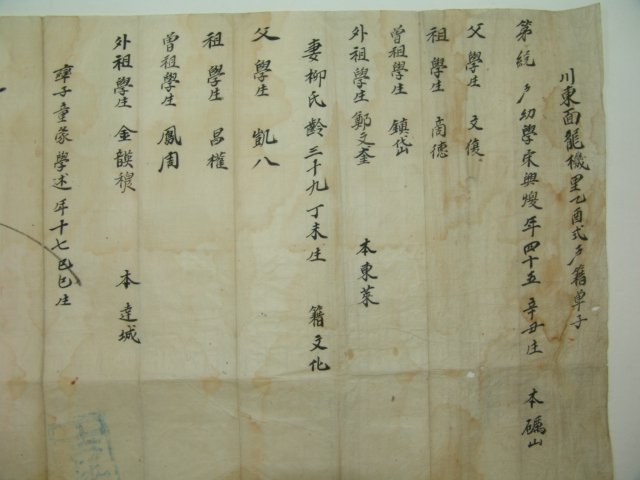 川東面龍機里乙酉式戶籍單子
第 統 戶幼學宋興燮年四十五 辛丑生 本礪山
父 學生 文俊
祖 學生 尚德
曾祖學生 鎮岱
外祖學生鄭文奎 本東萊
妻柳氏齡三十九丁未生 籍文化
父 學生 凱八
祖 學生 昌權
曾祖學生 鳳周
外祖學生 金謨穆 本達城
率子童蒙學述年十七己巳生